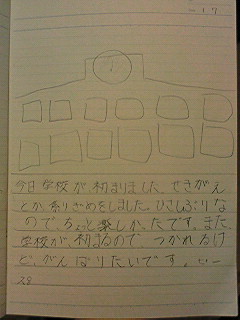 -17
今日学校が初まりました。せきがえ
とか係りぎめをしました。ひさしぶりな
ので、ちょっと楽しかったです。また
学校が初まるので、つかれるけ
ど、がんばりたいです。
28